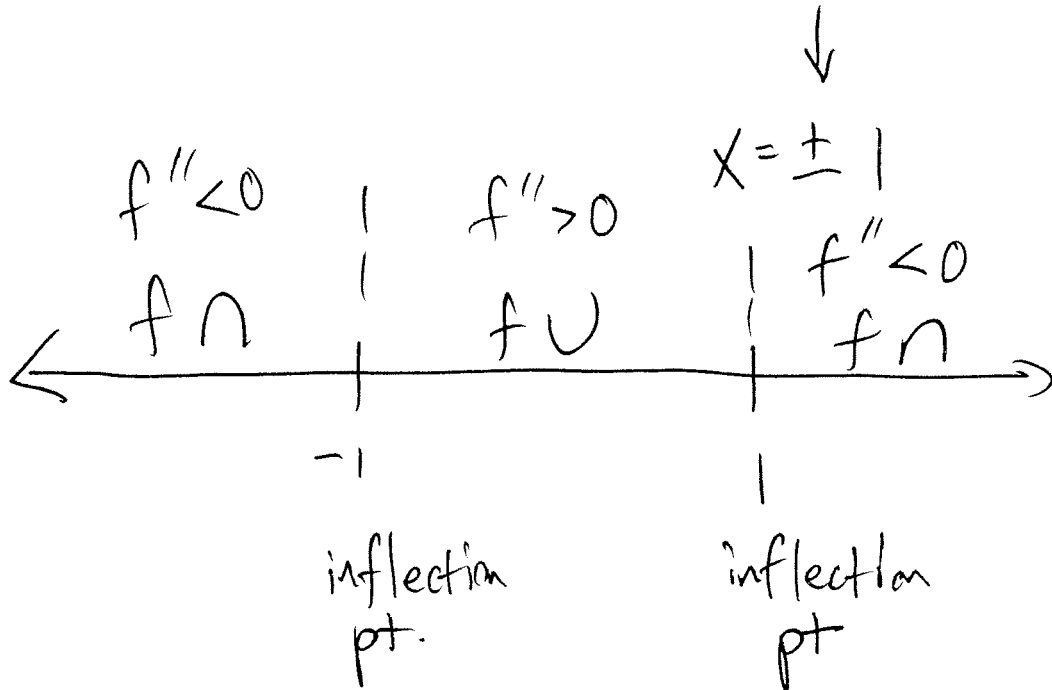 x = ± 1
f'' < 0
f'' > 0
f'' < 0
f ∩
f ∪
f ∩
-1
1
inflection
pt.
inflection
pt